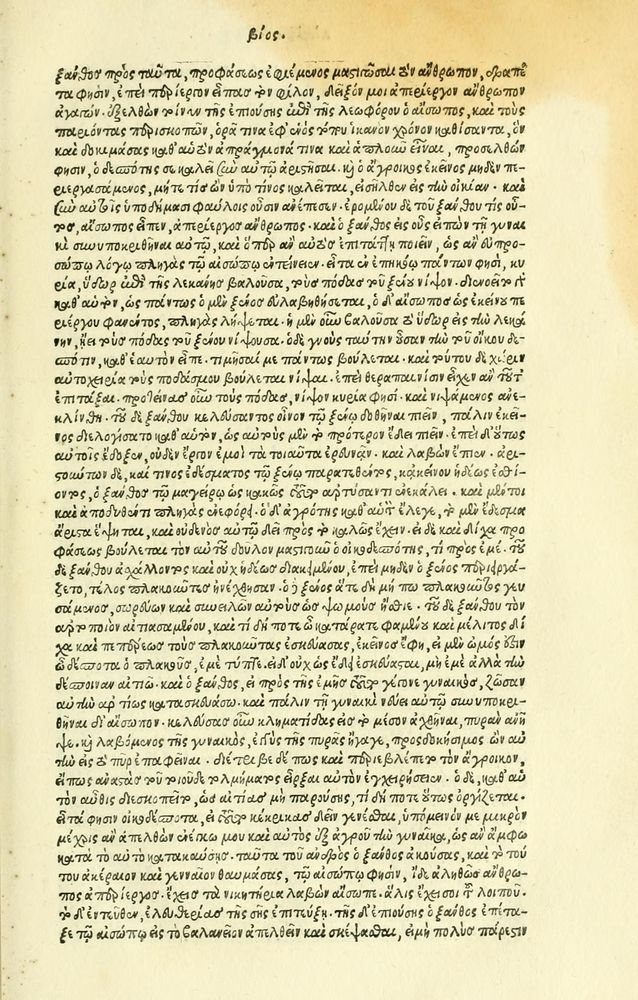 βίος.
ξανθος πρὸς ταῦτα, προφάσεως ἐφιέμενος μαστιγῶσαι τὸν ἄνθρωπον, δραπέ
τα φησὶν, ἐπεὶ περίεργον εἶπας τὸν φίλον, δεῖξόν μοι ἀπερίεργον ἄνθρωπον
ἐξελθὼν τοίνυν τῆς ἐπιούσης ἐπὶ τῆς λεωφόρου ὁ αἴσωπος, καὶ τοὺς
παριόντας περισκοπῶν, ὁρᾷ τινα ἐφ' ἑνὸς τόπου ἱκανὸν χρόνον καθίσαντα, ὃν
καὶ δοκιμάσας καθ' αὑτὸν ἀπράγμονά τινα καὶ ἁπλοῦν εἶναι, προσελθὼν
φησὶν, ὁ δεσπότης σε καλεῖ σὺν αὐτῷ ἀριστῆσαι. καὶ ὁ ἄγροικος ἐκεῖνος μηδὲν πε-
ριεργασάμενος, μήτε τίς ὢν ὑπὸ τίνος καλεῖται, εἰσῆλθεν εἰς τὴν οἰκίαν. καὶ
σὺν αὐτοῖς ὑποδήμασι φαύλοις οὖσιν ἀνέπεσεν. ἐρομένου δὲ τοῦ ξάνθου τίς οὗ-
τος, αἴσωπος εἶπεν, ἀπερίεργος ἄνθρωπος. καὶ ὁ ξάνθος εἰς οὖς εἰπὼν τῇ γυναι
κὶ συνυποκριθῆναι αὐτῷ, καὶ ὅπερ ἂν αὐτὸς ἐπιτάττῃ ποιεῖν, ὡς ἂν εὐπρο-
σώπῳ λόγῳ πληγὰς τῷ αἰσώπῳ ἐντείνειεν. εἶτα ἐν ἐπηκόῳ πάντων φησὶ, κυ
ρία, ὕδωρ ἐπὶ τῆς λεκάνης βαλοῦσα, τοὺς πόδας τοῦ ξένου νίψον. διενοεῖτο γὰρ
καθ' αὑτὸν, ὡς πάντως ὁ μὲν ξένος εὐλαβηθήσεται, ὁ δ' αἴσωπος ὡς ἐκείνου πε
ριέργου φανέντος, πληγὰς λήψεται. ἡ μὲν οὖν βαλοῦσα τὸ ὕδωρ εἰς τὴν λεκά
νην, ᾔει τοὺς πόδας τοῦ ξένου νίψουσα. ὁ δὲ γνοὺς ταύτην οὖσαν τὴν τοῦ οἴκου δε-
σπότιν, καθ' ἑαυτὸν εἶπε. τιμῆσαί με πάντως βούλεται. καὶ τούτου δὲ χάριν
αὐτοχειρίᾳ τοὺς πόδας μου βούλεται νίψαι. ἐπεὶ θεραπαινίσιν εἶχεν ἂν τοῦτ'
ἐπιτάξαι. προτείνας οὖν τοὺς πόδας, νίψον κυρία φησί. καὶ νιψάμενος ἀνε-
κλίνθη. τοῦ δὲ ξάνθου κελεύσαντος οἶνον τῷ ξένῳ δοθῆναι πιεῖν, πάλιν ἐκεῖ-
νος διελογίσατο καθ' αὑτὸν, ὡς αὐτοὺς μὲν τὸ πρότερον ἔδει πιεῖν. ἐπεὶ δ' οὕτως
αὐτοῖς ἔδοξεν, οὐδὲν ἔργον ἐμοὶ τὰ τοιαῦτα ἐρευνᾶν. καὶ λαβὼν ἔπιεν. ἀρι-
στώντων δὲ, καί τινος ἐδέσματος τῷ ξένῳ παρατεθέντος, κἀκείνου ἡδέως ἐσθί-
οντος, ὁ ξάνθος τῷ μαγείρῳ ὡς κακῶς ἀρτύσαντι ἐνεκάλει. καὶ μέντοι
καὶ ἀποδυθέντι πληγὰς ἐνεφόρει. ὁ δ' ἀγρότης καθ' αὑτὸν ἔλεγε, τὸ μὲν ἔδεσμα
ἄριστα ἕψηται, καὶ οὐδενὸς αὐτῷ δεῖ πρὸς τὸ καλῶς ἔχειν. εἰ δὲ καὶ δίχα προ
φάσεως βούλεται τὸν αὑτοῦ δοῦλον μαστιγοῦν ὁ οἰκοδεσπότης, τί πρὸς ἐμέ. τοῦ
δὲ ξάνθου ἀσχάλλοντος καὶ οὐχ ἡδέως διακειμένου, ἐπεὶ μηδὲν ὁ ξένος περιειργά-
ζετο, τέλος πλακοῦντες ἠνέχθησαν. ὁ δὲ ξένος ἅτε δὴ μή πω πλακοῦντος γευ
σάμενος, σωρεύων καὶ συνειλῶν αὐτοὺς ὡς ψωμοὺς ἤσθιε. τοῦ δὲ ξάνθου τὸν
ἀρτοποιὸν αἰτιασαμένου, καὶ τί δή ποτε ὦ κατάρατε φαμένου καὶ μέλιτος δί
χα καὶ πεπέρεως τοὺς πλακοῦντας ἐσκεύασας, ἐκεῖνος ἔφη, εἰ μὲν ὠμός ἐστιν
ὦ δέσποτα ὁ πλακοῦς, ἐμὲ τύπτε. εἰ δ' οὐχ ὡς ἔδει ἐσκεύασται, μὴ ἐμὲ ἀλλὰ τὴν
δέσποιναν αἰτιῶ. καὶ ὁ ξάνθος, εἰ πρὸς τῆς ἐμῆς τοῦτο γέγονε γυναικὸς, ζῶσαν
αὐτὴν ἄρτι ὡς κατακαύσω. καὶ πάλιν τῇ γυναικὶ νεύει αὐτῷ συνυποκρι-
θῆναι δι' αἴσωπον. κελεύσας οὖν κληματίδας εἰς τὸ μέσον ἀχθῆναι, πυρὰν ἀνῆ
ψε. καὶ λαβόμενος τῆς γυναικὸς, ἐγγὺς τῆς πυρᾶς ἤγαγε, προσδοκήσιμος ὢν αὐ
τὴν εἰς τὸ πῦρ ἐπαφεῖναι. διέτριβε δέ πως καὶ περιέβλεπε τὸν ἄγροικον,
εἴ πως ἀναστὰς τοῦ τοιοῦδε τολμήματος εἶρξαι αὐτὸν ἐγχειρήσειεν. ὁ δὲ, καθ' αὑ
τὸν αὖθις διεσκόπει, ὡς αἰτίας μὴ παρούσης, τί δή ποτε οὕτως ὀργίζεται.
εἶτά φησιν οἰκοδέσποτα, εἰ τοῦτο κέκρικας δεῖν γενέσθαι, ὑπόμεινόν με μικρὸν
μέχρις ἂν ἀπελθὼν ἐνέγκω μου καὶ αὐτὸς ἐξ ἀγροῦ τὴν γυναῖκα, ὡς ἂν ἄμφω
κατὰ τὸ αὐτὸ κατακαύσῃς. ταῦτα τοῦ ἀνδρὸς ὁ ξάνθος ἀκούσας, καὶ τὸ τού
του ἀκέραιον καὶ γενναῖον θαυμάσας, τῷ αἰσώπῳ φησὶν, ἴδε ἀληθῶς ἄνθρω-
πος ἀπερίεργος. ἔχεις τὰ νικητήρια λαβὼν αἴσωπε. ἅλις ἔχει σοι τοῦ λοιποῦ.
τὸ δ' ἐντεῦθεν, ἐλευθερίας τῆς σῆς ἐπιτεύξῃ. τῆς δ' ἐπιούσης ὁ ξάνθος ἐπέτα-
ξε τῷ αἰσώπῳ εἰς τὸ βαλανεῖον ἀπελθεῖν καὶ σκέψασθαι, εἰ μὴ πολὺς πάρεστιν